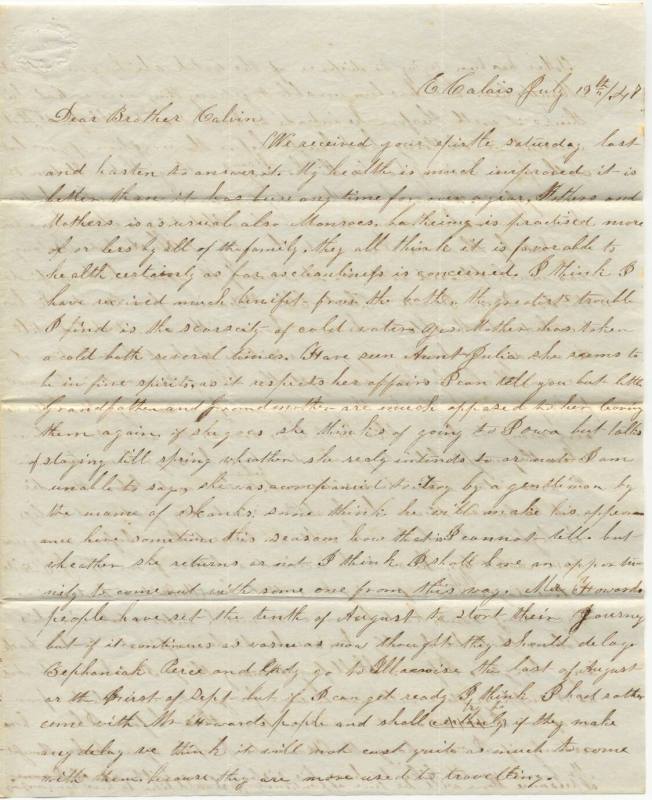 E Calais July 19th/47
Dear Brother Calvin
We received your epistle saturday last
and hasten to answer it. My health is much improved it is
better than it has been any time for near a year. Fathers and
Mothers is as usual also Monroes. batheing is practised more
of or less by all of the family. they all think it is favorable to
health certainly as far as cleanliness is concerned. I think I
have received much benifit from the bath. the greatest trouble
I find is the scarcity of cold water. Mother has taken
a cold bath several times. Have seen Aunt Julia she seems to
be in fine spirits. as it respects her affairs I can tell you but little
Grandfather and Grandmother are much opposed to her leaving
them again. if she goes she thinks of going to Iowa but talks
of staying till spring wheather she realy intends to or not I am
unable to say. she was accompanied to by a gentleman by
the name of Shanks. some think he will make his appear
ance here sometime this season how that is I cannot tell. but
wheather she returns or not I think I shall have an opportu
nity to come out with some one from this way. Mr Howards
people have set the tenth of August to start their Journey
but if it continues as warm as now thought they should delay
Zephaniah Peirce and Lady go to Illanoise the last of August
or the first of Sept but if I can get ready I think I had rather
come with Mr Howards people and shall try to if they make
any delay we think it will not cost quite as much to come
with them because they are more used to travelling.